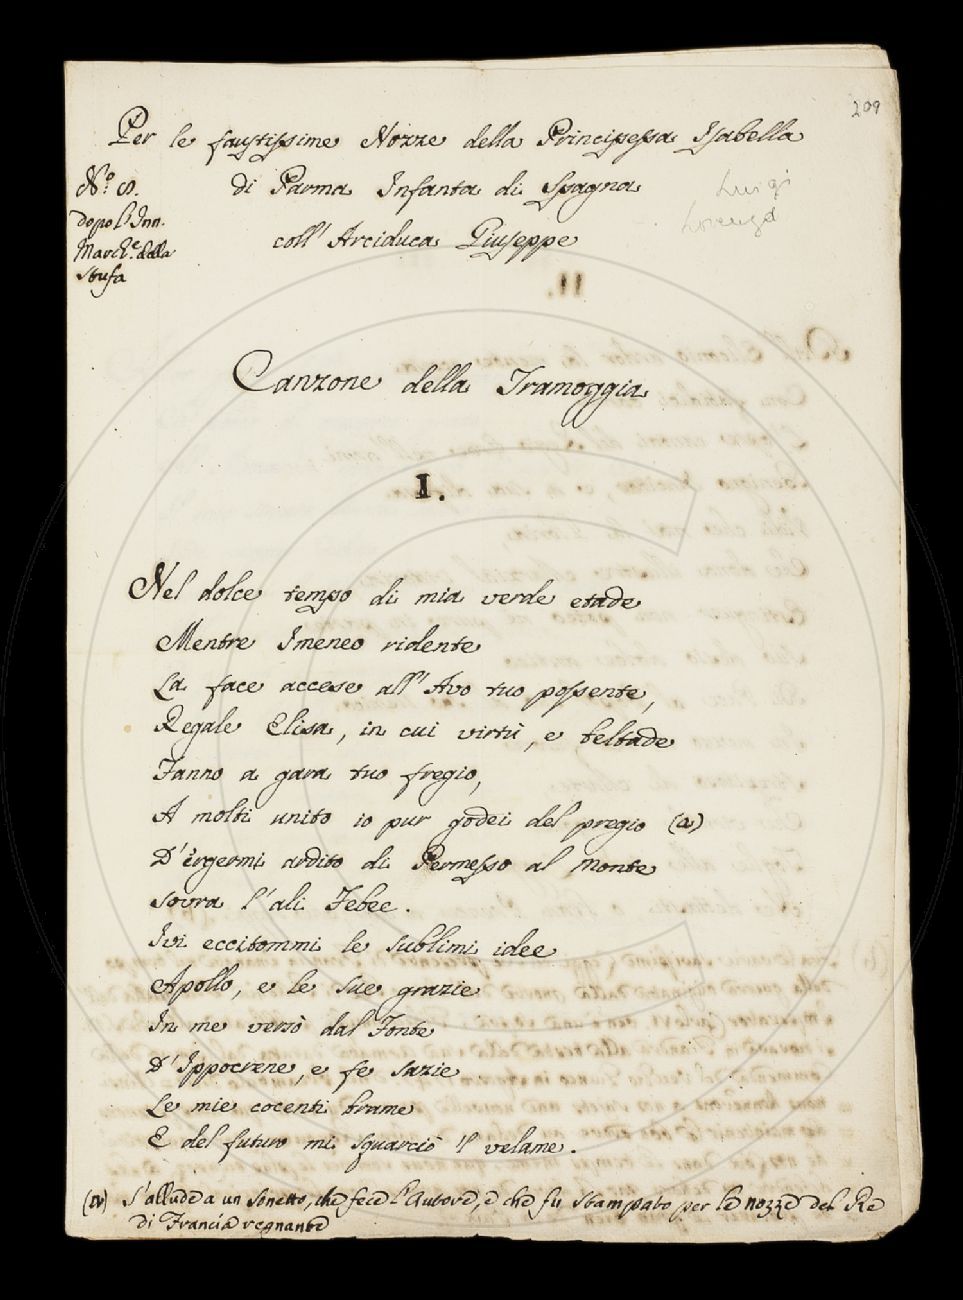 209
Per le faustissime Nozze della Principessa Isabella
di Parma Infanta di Spagna
coll' Arciduca Giuseppe
Luigi
Lorenzo
N.º 8.
dopo l'Inn.
March.e della
Stufa
Canzone della Tramoggia
I.
Nel dolce tempo di mia verde etade
Mentre Imeneo ridente
La face accese all' Avo tuo possente,
Regale Elisa, in cui virtù, e beltade
Fanno a gara tuo fregio,
A molti unito io pur godei del pregio (a)
D'ergermi ardito di Permesso al monte
Sovra l'ali Febee.
Ivi eccitommi le sublimi idee
Apollo, e le sue grazie
In me versò dal Fonte
D'Ippocrene, e fe sazie
Le mie cocenti brame
E del futuro mi squarciò il velame.
(a) S'allude a un Sonetto, che fece l'Autore, e che fu stampato per le nozze del Re
di Francia regnante